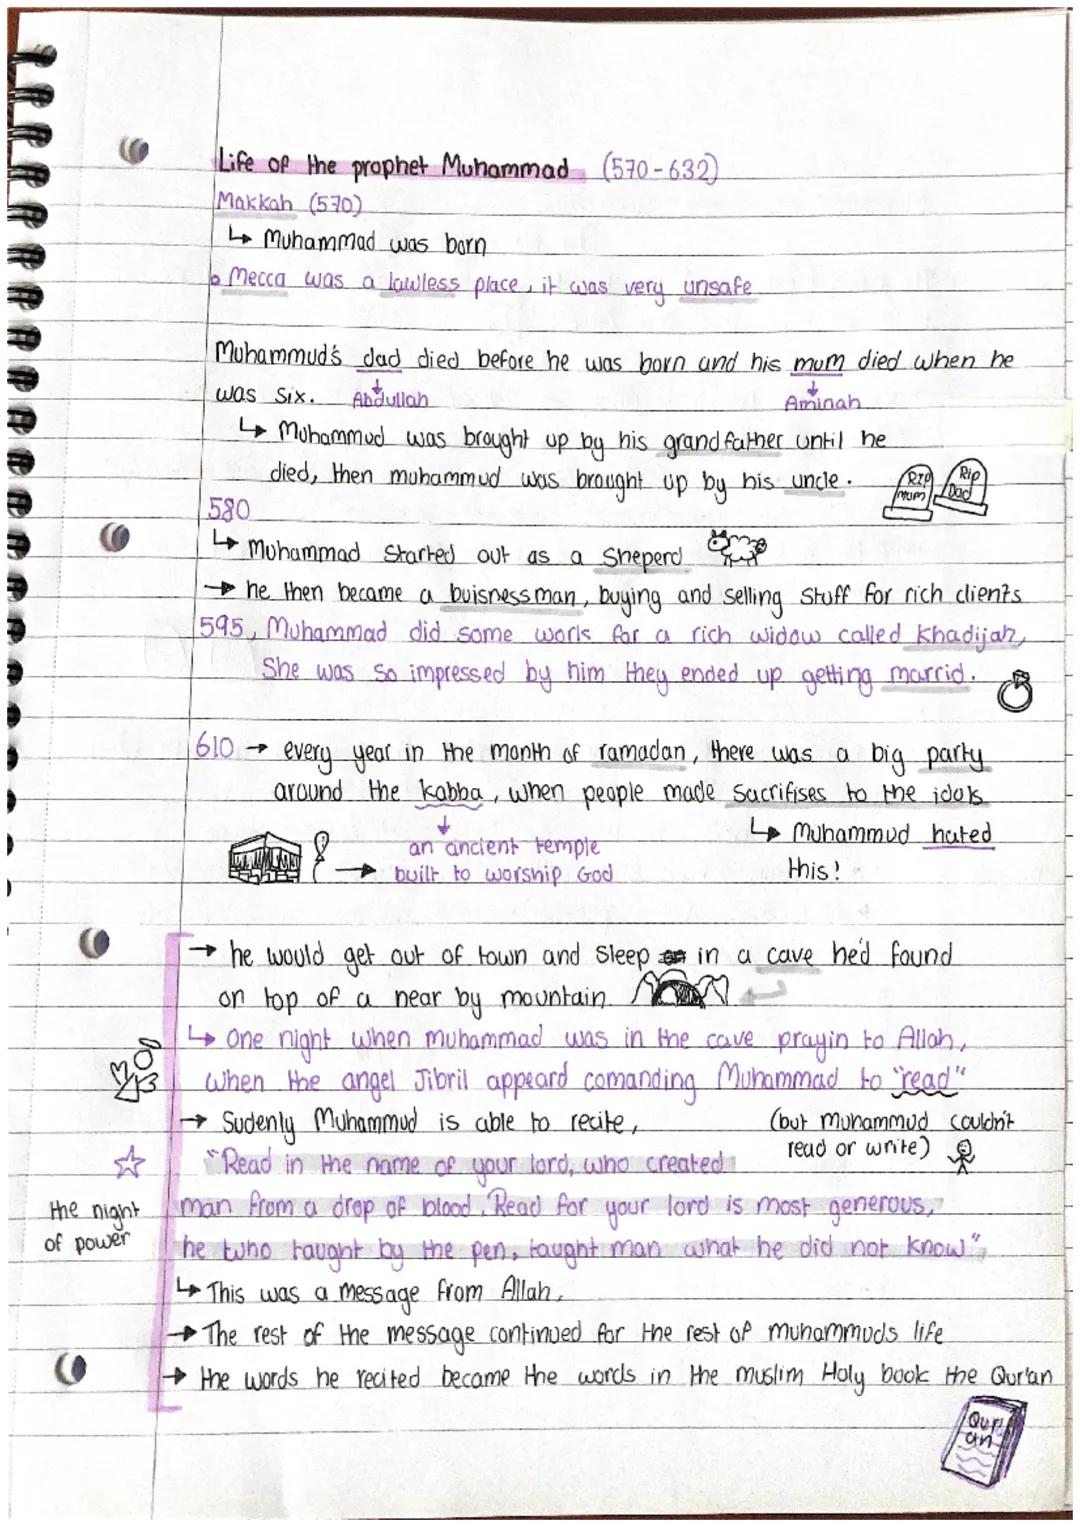 Life of the prophet Muhammad (570-632)
Makkah (570)
↳ Muhammad was born
Mecca was a lawless place, it was very unsafe
Muhammud's dad died before he was born and his mum died when he
was six. Abdullah Aminah
↳ Muhammud was brought up by his grandfather until he
died, then muhammud was brought up by his uncle.
RIP Mum
Rip Dad
580
↳ Muhammad Started out as a Sheperd
→ he then became a buisnessman, buying and selling stuff for rich clients
595, Muhammad did some work for a rich widow called Khadijah,
She was so impressed by him they ended up getting marrid.
610 → every year in the month of ramadan, there was a big party
around the kabba, when people made sacrifises to the idols
↳ Muhammud hated
this!
↓
an ancient temple
→ built to worship God
→ he would get out of town and sleep in a cave he'd found
on top of a near by mountain
↳ One night when muhammad was in the cave prayin to Allah,
when the angel Jibril appeard comanding Muhammad to "read"
→ Sudenly Muhammud is able to recite,
(but muhammud couldn't
read or write)
"Read in the name of your lord, who created
man from a drop of blood. Read for your lord is most generous,
he who taught by the pen, taught man what he did not know"
the night
of power
↳ This was a message from Allah.
→ The rest of the message continued for the rest of muhammuds life
→ the words he recited became the words in the muslim Holy book the Qur'an
Qur
an